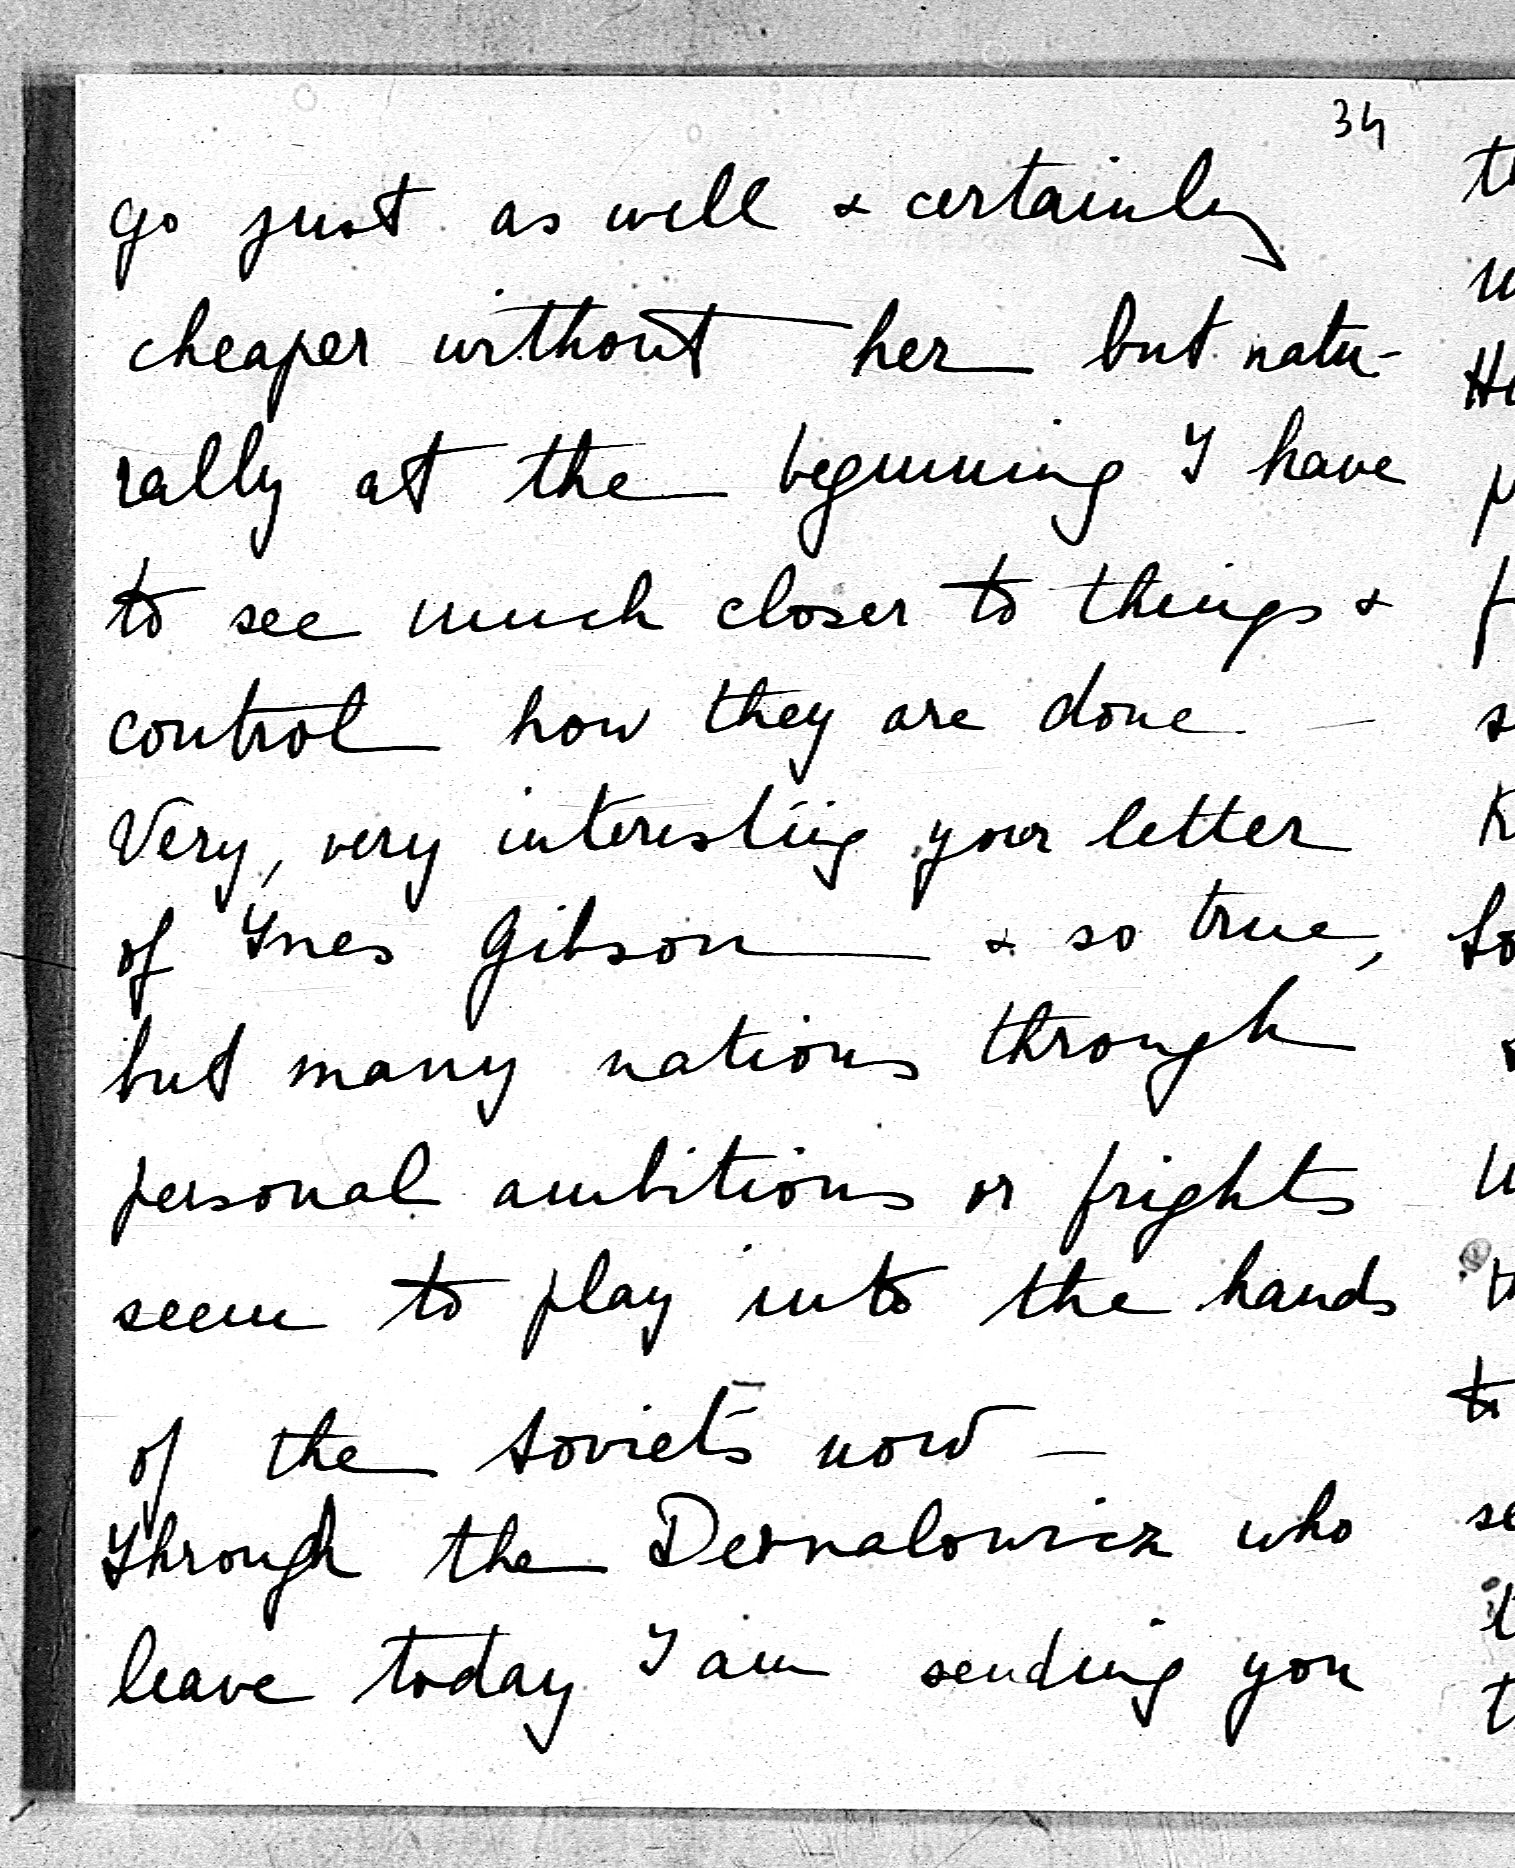 34
go just as well & certainly
cheaper without her but natu-
rally at the beginning I have
to see much closer to things &
control how they are done —
Very, very interesting your letter
of Ynes Gibson & so true,
but many nations through
personal ambitions or frights
seem to play into the hands
of the Soviets now —
Through the Dernalowicz who
leave today I am sending you